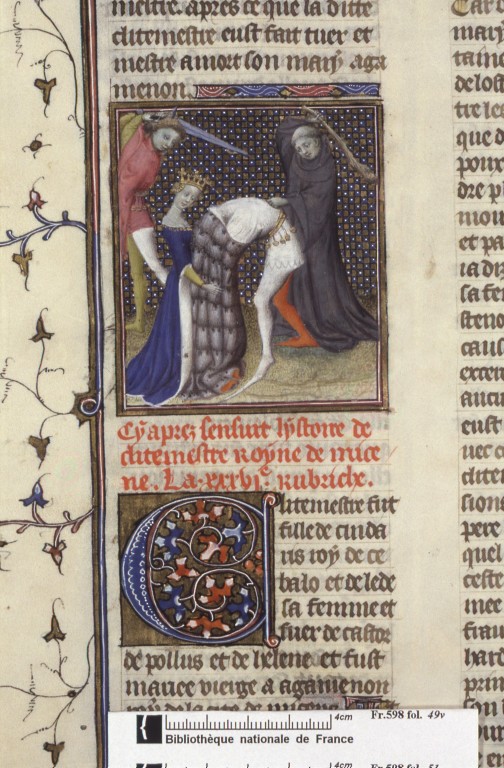 mestre. apres ce que la ditte
clitemestre eust fait tuer et
mestre a mort son mary aga
menon.
Cy apres sensuit lystoire de
clitemestre royne de mice
ne. La .xxxvie. rubriche.
Clitemestre fut
fille de cinda
rus roy de ce
balo et de lede
sa femme et
suer de castor
de pollus et de helene et fust
mariee vierge a agamenon
Car d
mary
tainc
de lost
tre le
que d
pour
dre p
mou
et pa
sa fe
caus
aucu
eust
uec c
clite
sion
pere
quel
cestr
mee
frau
hard
prin
son
4cm
Fr.598 fol. 49v
Bibliothèque nationale de France
4cm
Fr.598 fol. 51